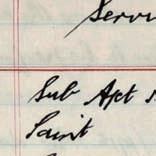 Servi
Sub Apt s
Saint